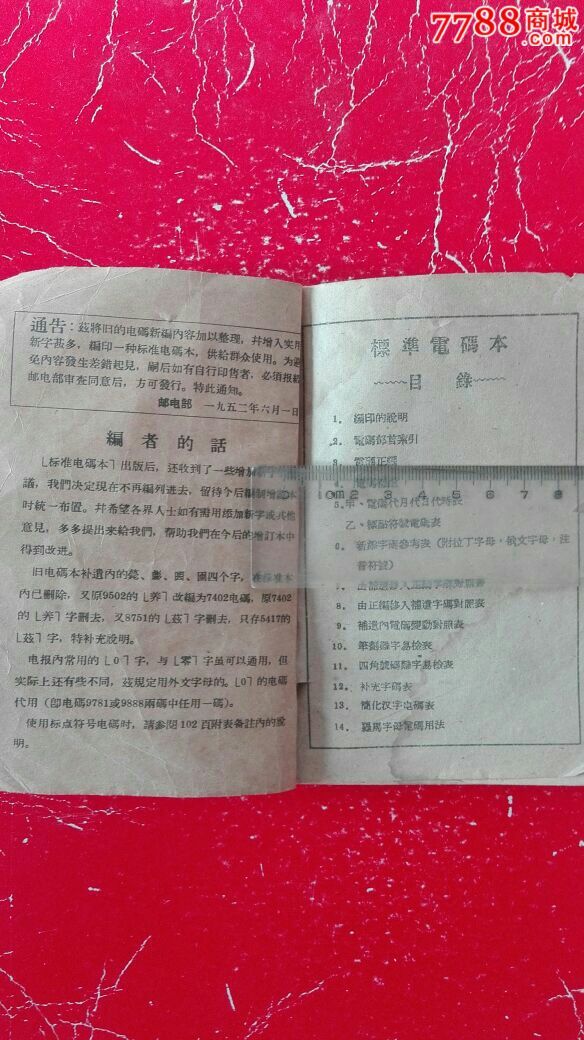 7788商城
.com
通告：茲將旧的电碼新編內容加以整理，幷增入实用
新字甚多，編印一种标准电碼本，供給群众使用。为避
免內容發生差錯起見，嗣后如有自行印售者，必須报經
邮电部审查同意后，方可發行。特此通知。
邮电部 一九五二年六月一日
編者的話
⌊标准电碼本⌉出版后，还收到了一些增加
議，我們决定現在不再編列進去，留待今后編制增訂本
时統一布置。幷希望各界人士如有需用續加新字或其他
意見，多多提出来給我們，帮助我們在今后的增訂本中
得到改进。
旧电碼本补遺內的 四个字，在标准本
內已删除，又原9502的⌊养⌉改編为7402电碼，原7402
的⌊养⌉字删去，又8751的⌊茲⌉字删去，只存5417的
⌊茲⌉字，特补充說明。
电报內常用的⌊0⌉字，与⌊零⌉字虽可以通用，但
实际上还有些不同，茲規定用外文字母的。⌊0⌉的电碼
代用（卽电碼9781或9888兩碼中任用一碼）。
使用标点符号电碼时，請參閱102頁附表备註內的說
明。
標準電碼本
目錄
1．編印的說明
2．電碼部首索引
3．電碼正編
4．電碼補遺
0 1cm 2 3 4 5 6 7 8
5．甲、電碼代月代日代時表
乙、標點符號電碼表
6．新部字画參考表（附拉丁字母，俄文字母，注
音符號）
7．由補遺移入正編字碼對照表
8．由正編移入補遺字碼對照表
9．補遺內電碼變動對照表
10．筆劃器字易检表
11．四角號碼器字易检表
12．补充字碼表
13．簡化汉字电碼表
14．羅馬字母電碼用法